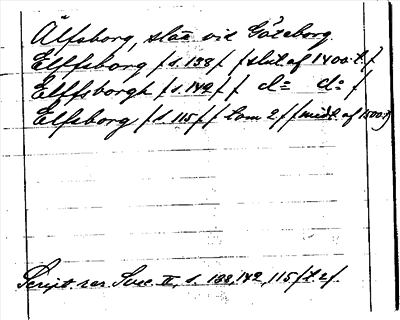 Älfsborg, slott vid Göteborg.
Elffsborg /s. 138/ /slut. af 1400-t./
Elffsborgh /s. 142/ / d:o d:o /
Elfsborg /s. 115/ / tom 2 / /midt. af 1500-t/
Script. rer. Svec. II, s. 138, 142, 115 /t. 2/.